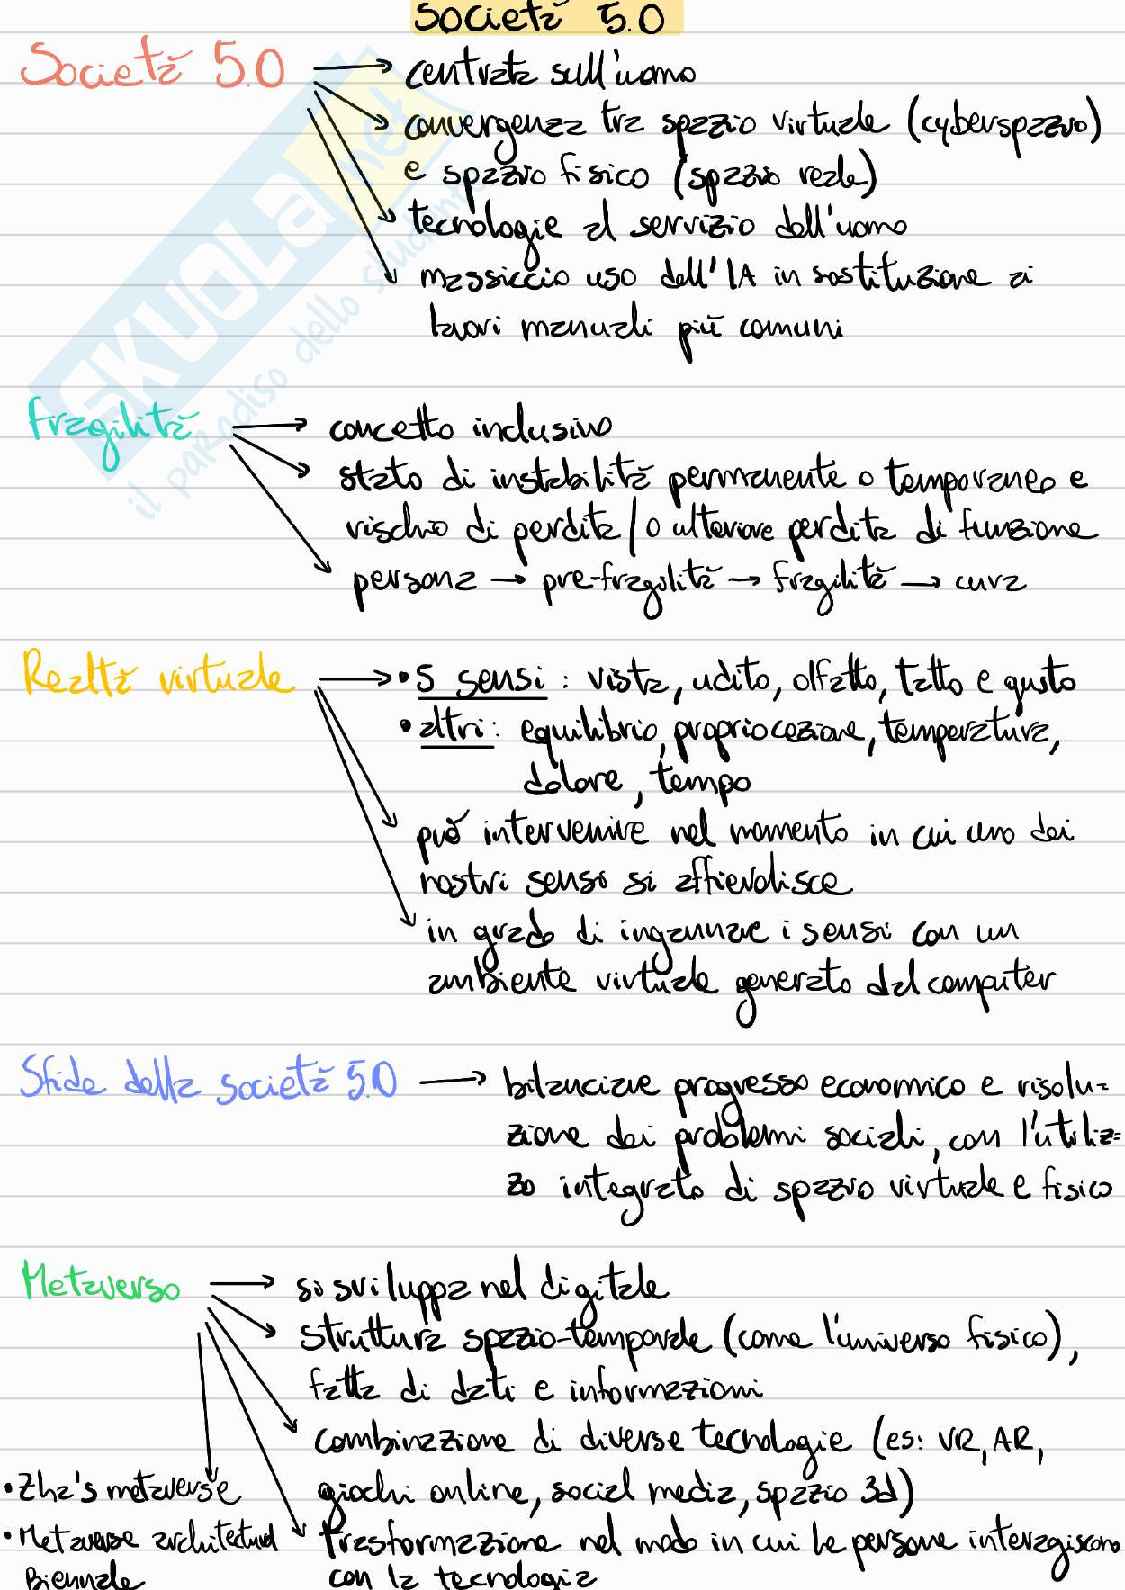 Società 5.0
Società 5.0 → centrata sull'uomo
→ convergenza tra spazio virtuale (cyberspazio)
e spazio fisico (spazio reale)
→ tecnologie al servizio dell'uomo
→ massiccio uso dell'IA in sostituzione ai
lavori manuali più comuni
Fragilità → concetto inclusivo
→ stato di instabilità permanente o temporaneo e
rischio di perdita/o ulteriore perdita di funzione
→ persona → pre-fragilità → fragilità → cura
Realtà virtuale → • 5 sensi: vista, udito, olfatto, tatto e gusto
• altri: equilibrio, propriocezione, temperatura,
dolore, tempo
→ può intervenire nel momento in cui uno dei
nostri sensi si affievolisce
→ in grado di ingannare i sensi con un
ambiente virtuale generato dal computer
Sfide della società 5.0 → bilanciare progresso economico e risolu=
zione dei problemi sociali, con l'utiliz=
zo integrato di spazio virtuale e fisico
Metaverso → si sviluppa nel digitale
→ struttura spazio-temporale (come l'universo fisico),
fatta di dati e informazioni
→ combinazione di diverse tecnologie (es: VR, AR,
giochi online, social media, spazio 3d)
→ trasformazione nel modo in cui le persone interagiscono
con la tecnologia
• Zha's metaverse
• Metaverse architectural
Biennale
SKUOLA.net
il paradiso dello studente